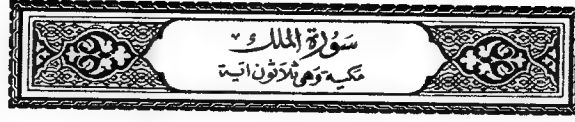 سَوُرَة المُلك
مَكيّة وَهي ثلاثون اٰيَة